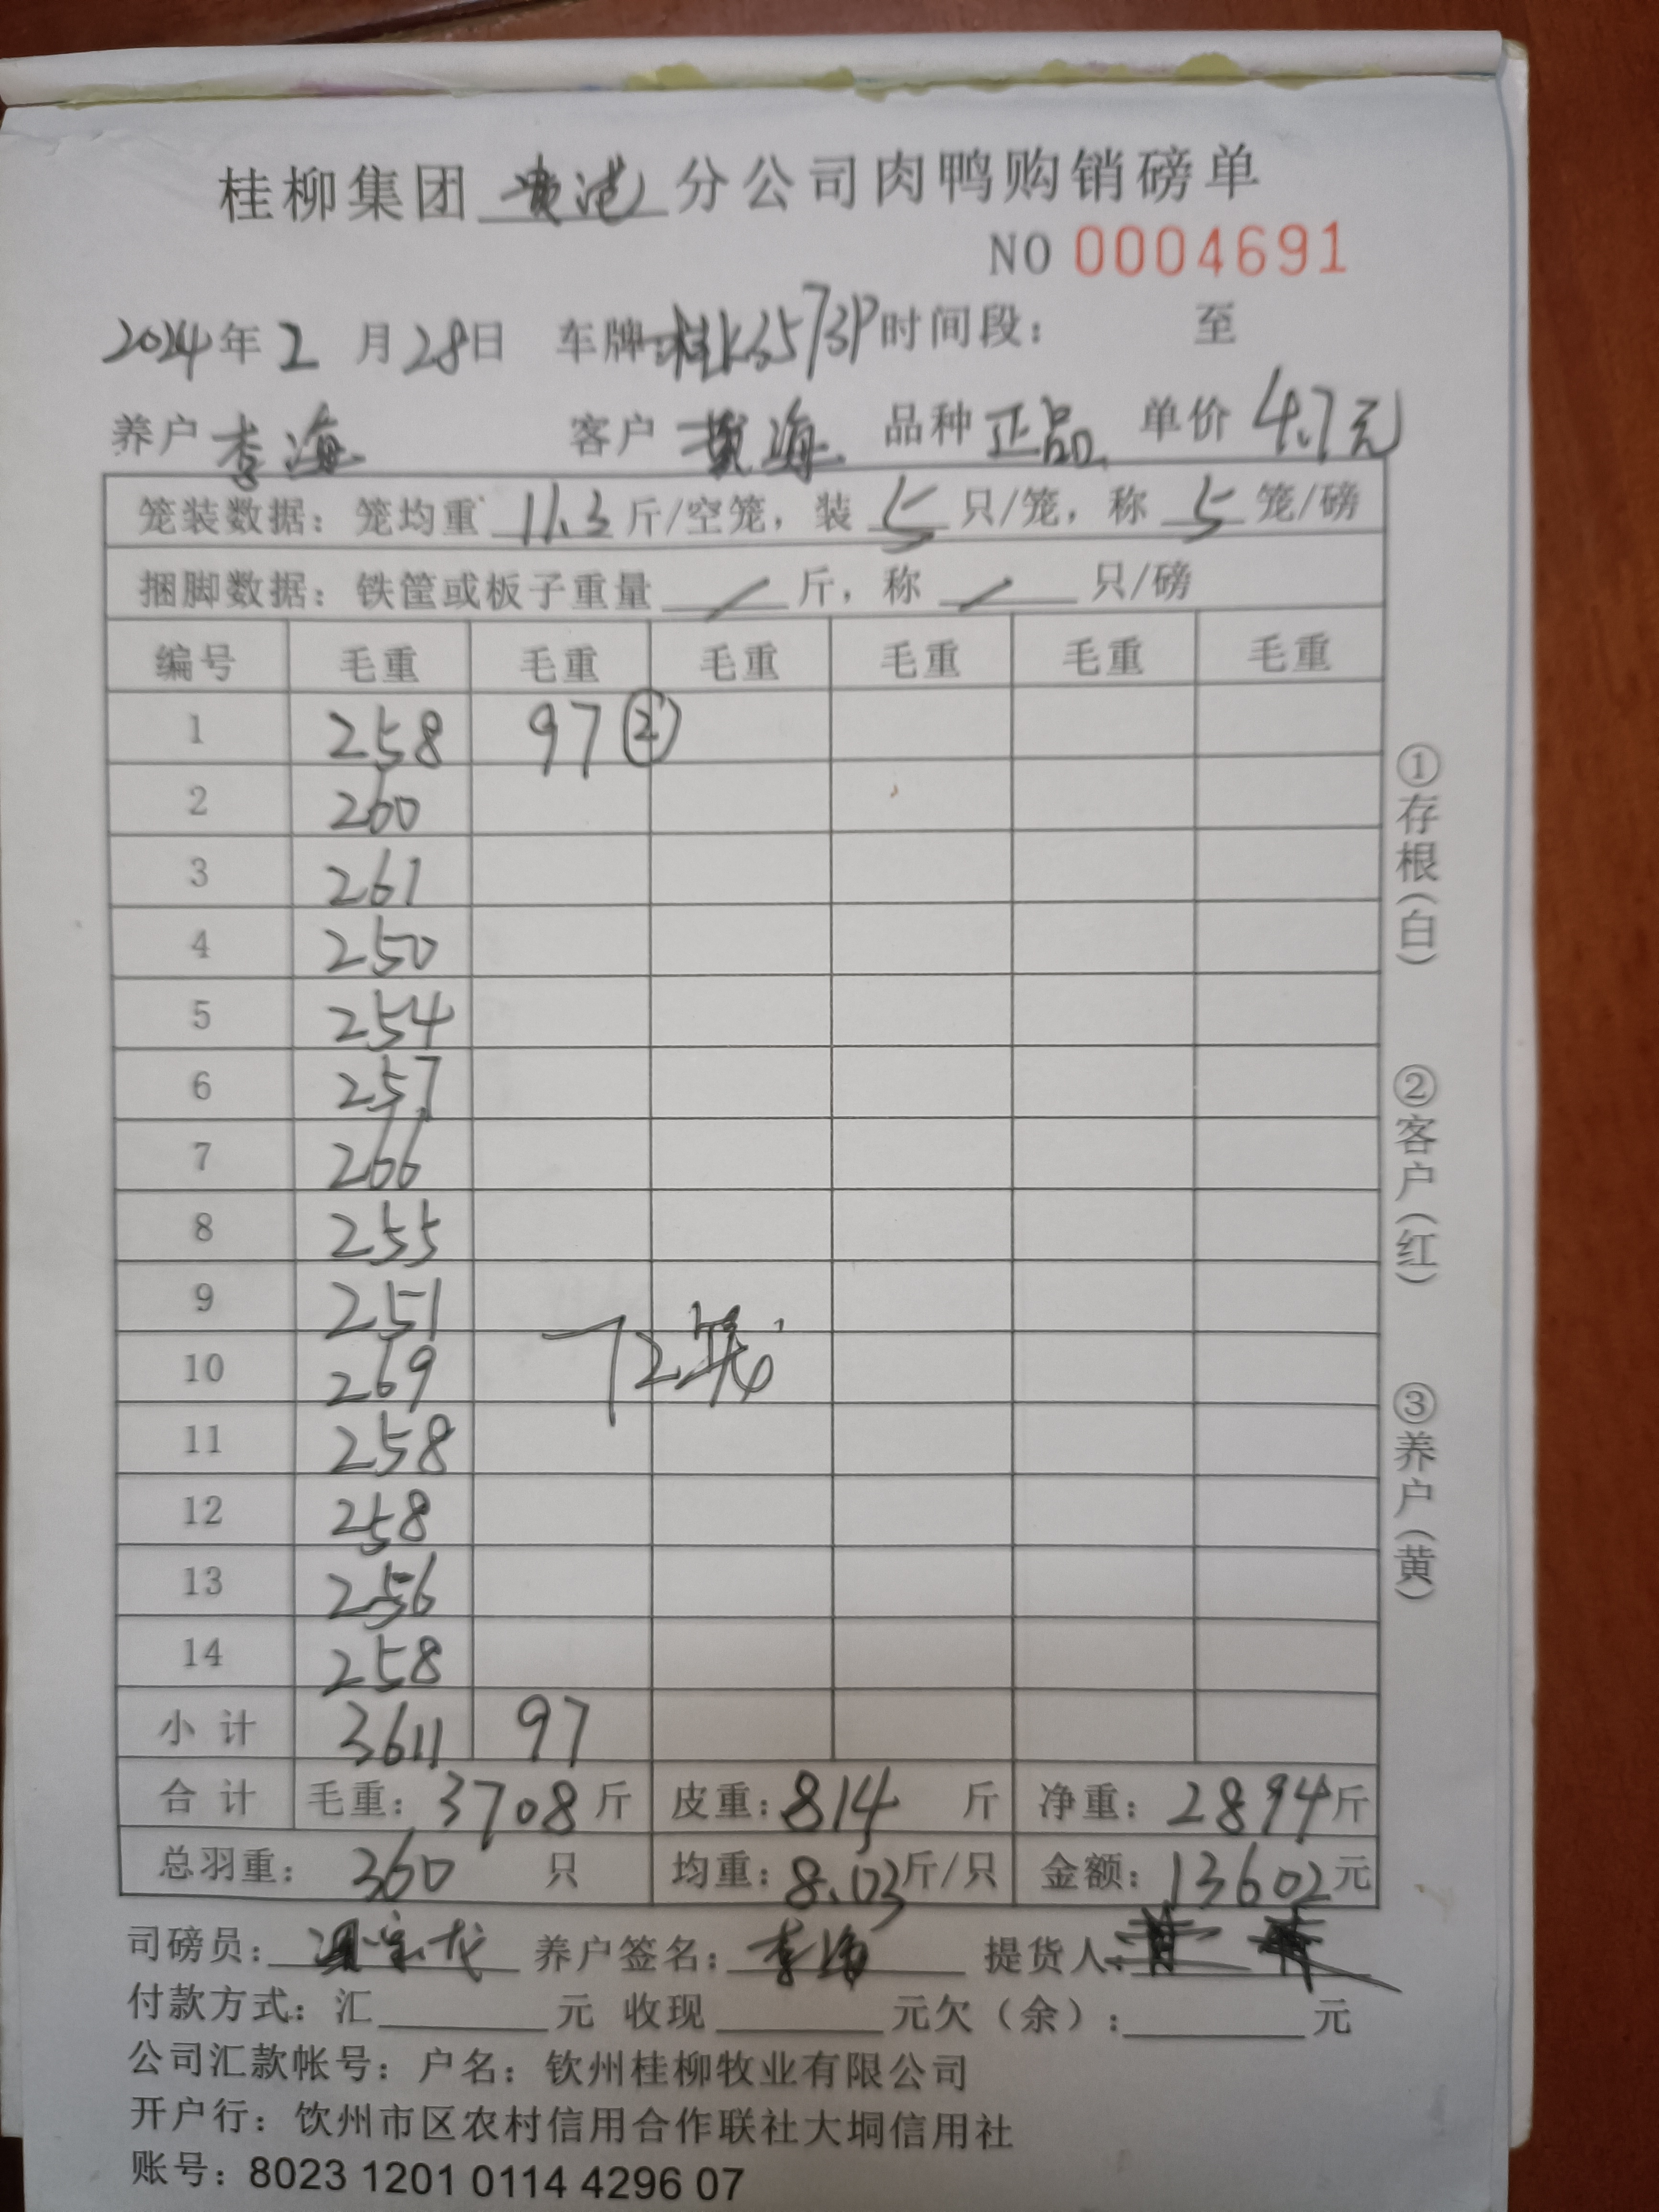 桂柳集团 贵港 分公司肉鸭购销磅单
NO 0004691
2024年2月28日 车牌:桂K3573P 时间段: 至
养户 李海 客户 黄海 品种 正品 单价 4.7元
笼装数据: 笼均重 11.3 斤/空笼, 装 5 只/笼, 称 5 笼/磅
捆脚数据: 铁筐或板子重量 / 斤, 称 / 只/磅
编号 毛重 毛重 毛重 毛重 毛重 毛重
1 258 97 ②
2 260
3 261
4 250
5 254
6 257
7 266
8 255
9 251
10 269 72笼
11 258
12 258
13 256
14 258
小计 3611 97
合计 毛重: 3708 斤 皮重: 814 斤 净重: 2894 斤
总羽重: 360 只 均重: 8.03 斤/只 金额: 13602 元
司磅员: 养户签名: 李海 提货人:
付款方式: 汇 元 收现 元欠(余): 元
公司汇款帐号: 户名: 钦州桂柳牧业有限公司
开户行: 钦州市区农村信用合作联社大垌信用社
账号: 8023 1201 0114 4296 07
①存根(白)
②客户(红)
③养户(黄)